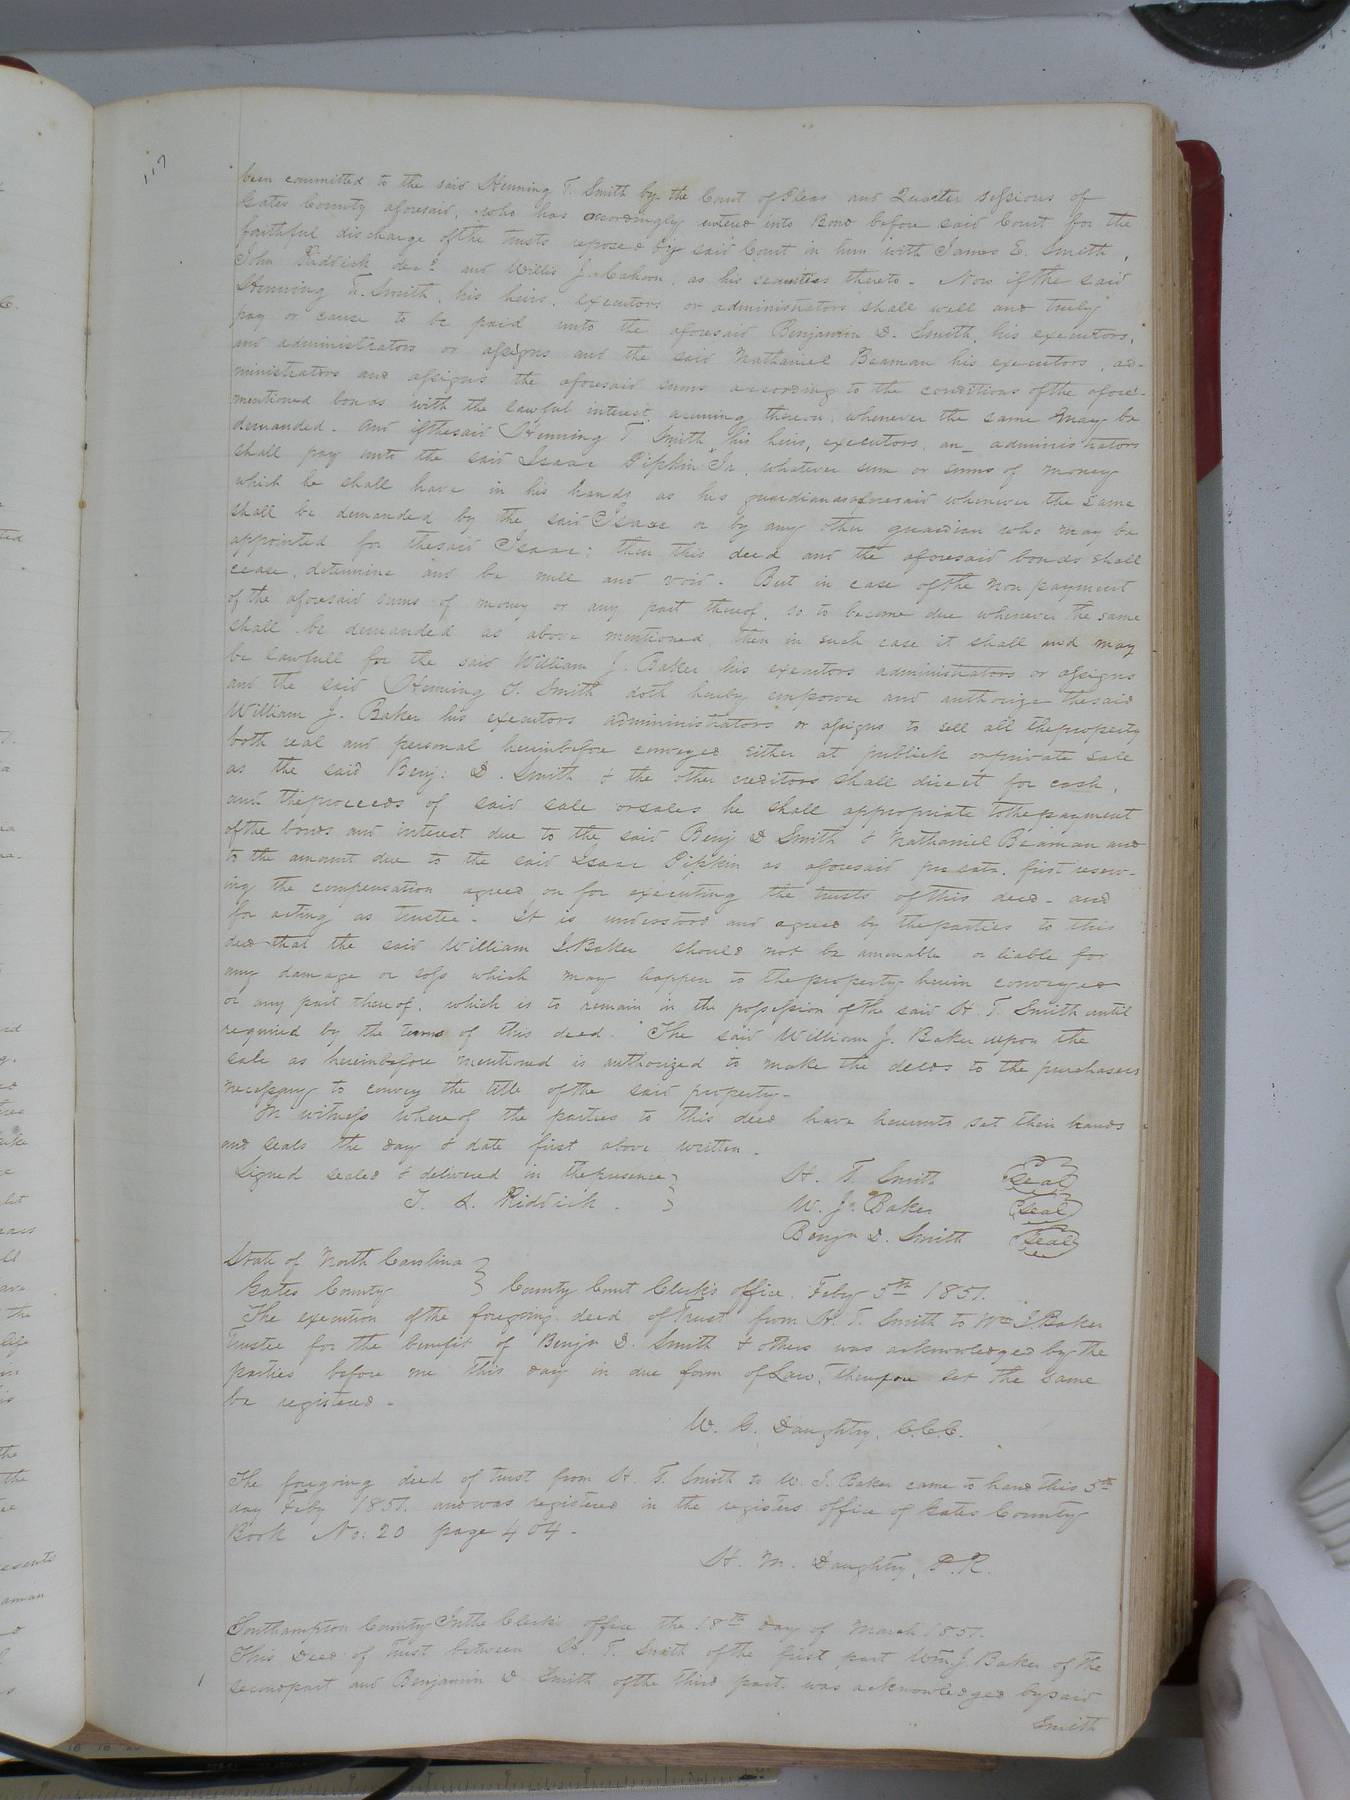 been committed to the said Henning T. Smith by the Court of Pleas and Quarter sessions of
Gates County aforesaid, who has accordingly entered into Bond before said Court for the
faithful discharge of the trusts reposed by said Court in him with James E. Smith,
John Riddick decd and Willis J. Cahoon, as his securities thereto. Now if the said
Henning T. Smith, his heirs, executors or administrators shall well and truly
pay or cause to be paid unto the aforesaid Benjamin D. Smith, his executors,
and administrators or assigns and the said Nathaniel Beaman his executors, ad-
ministrators and assigns the aforesaid sums according to the conditions of the afore-
mentioned bonds with the lawful interest accruing thereon whenever the same may be
demanded. And if the said Henning T Smith his heirs, executors, an_ administrators
shall pay unto the said Isaac Pipkin Jr. whatever sum or sums of money
which he shall have in his hands as his guardian as aforesaid whenever the same
shall be demanded by the said Isaac or by any other guardian who may be
appointed for the said Isaac; then this deed and the aforesaid bonds shall
cease, determine and be null and void. But in case of the non payment
of the aforesaid sums of money or any part thereof, so to become due whenever the same
shall be demanded as above mentioned, then in such case it shall and may
be lawfull for the said William J. Baker his executors administrators or assigns
and the said Henning T. Smith doth hereby empower and authorize the said
William J. Baker his executors admininistrators or assigns to sell all the property
both real and personal hereinbefore conveyed either at publick or private sale
as the said Benj: D. Smith & the other creditors shall direct for cash,
and the proceeds of said sale or sales he shall appropriate to the payment
of the bonds and interest due to the said Benj D Smith & Nathaniel Beaman and
to the amount due to the said Isaac Pipkin as aforesaid pro rata, first reserv-
ing the compensation agreed on for executing the trusts of this deed - and
for acting as trustee. It is understood and agreed by the parties to this
deed that the said William J. Baker should not be amenable or liable for
any damage or loss which may happen to the property herein conveyed
or any part thereof, which is to remain in the possession of the said H. T. Smith until
required by the terms of this deed. The said William J. Baker upon the
sale as hereinbefore mentioned is authorized to make the deeds to the purchasers
necessary to convey the title of the said property.
In witness whereof the parties to this deed have hereunto set their hands
and seals the day & date first above written.
Signed sealed & delivered in the presence } H. T. Smith Seal
Riddick. } W. J. Baker Seal
Benjn D. Smith Seal
State of North Carolina }
Gates County } County Court Clerk's office. Feby 5th 1851.
The execution of the foregoing deed of Trust from H. T. Smith to Wm J. Baker
Trustee for the benefit of Benjn D. Smith & others was acknowledged by the
parties before me this day in due form of Law, therefore let the same
be registered.
W. G. Daughtry, C.C.C.
The foregoing deed of trust from H. T. Smith to W. J. Baker came to hand this 5th
day Feby 1851. and was registered in the registers office of Gates County
Book No: 20 page 404.
H. M. Daughtry, P.R.
Southampton County In the Clerk's office the 18th day of March 1851.
This Deed of trust between H. T. Smith of the first part Wm J. Baker of the
second part and Benjamin D Smith of the third part, was acknowledged by said
Smith